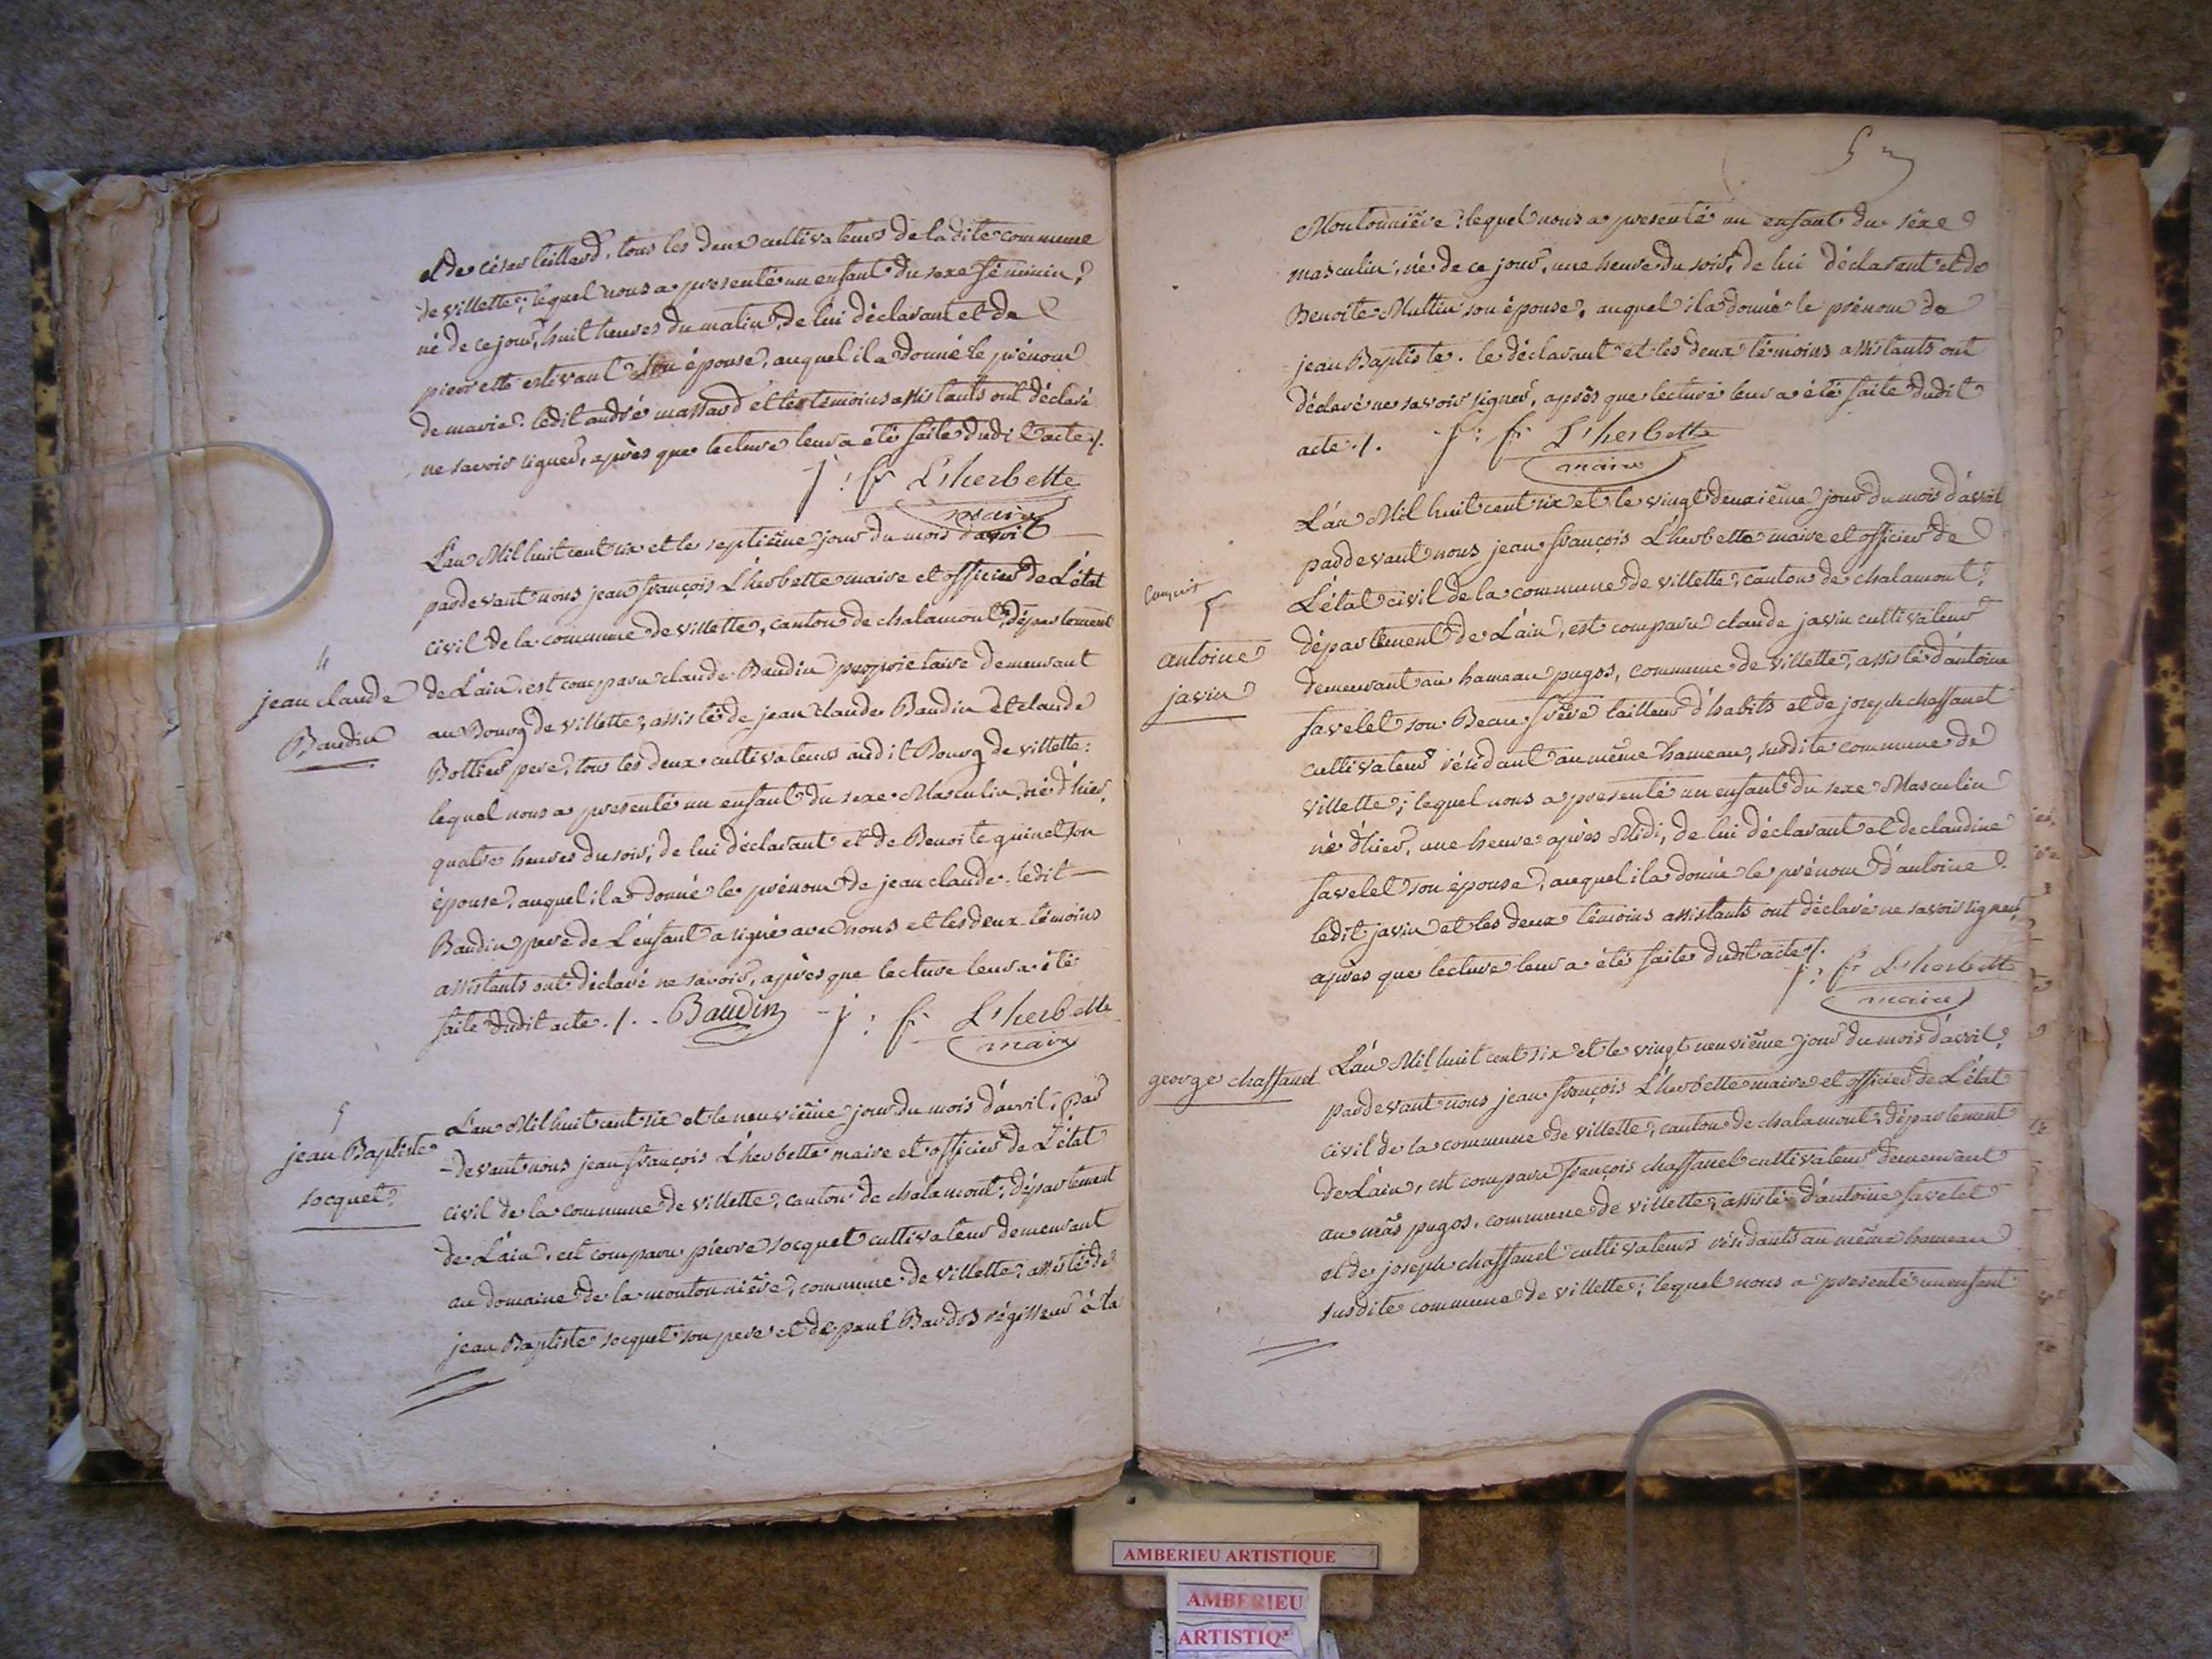 et de césar cuillerd, tous les deux cultivateurs de la dite commune
de villette; lequel nous a presenté un enfant du sexe féminin,
né de ce jour, huit heures du matin, de lui déclarant et de
pierrette estivant son épouse, auquel il a donné le prénom
de marie. ledit andré massard et les temoins assistants ont déclaré
ne savoir signer, après que lecture leur a été faite dudit acte ./.
j: fr L'herbette
maire
4
jean claude
Baudin
L'an Mil huit cent six et le septième jour du mois d'avril
pardevant nous jean françois L'herbette maire et officier de L'état
civil de la commune de villette, canton de chalamont, département
de L'ain, est comparu claude Baudin proprietaire demeurant
au Bourg de villette, assisté de jean claude Baudin et claude
Bottier pere, tous les deux cultivateurs audit Bourg de villette:
lequel nous a presenté un enfant du sexe Masculin, né d'hier,
quatre heures du soir, de lui déclarant et de Benoite guinet son
épouse, auquel il a donné le prénom de jean claude. ledit
Baudin pere de L'enfant a signé avec nous et les deux témoins
assistants ont déclaré ne savoir, après que lecture leur a été
faite dudit acte ./. Baudin j: fr L'herbette
maire
5
jean Baptiste
socquet
L'an Mil huit cent six et le neuvième jour du mois d'avril, par
devant nous jean françois L'herbette maire et officier de L'état
civil de la commune de villette, canton de chalamont, département
de L'ain, est comparu pierre socquet cultivateur demeurant
au domaine de la moutonnière, commune de villette, assisté de
jean Baptiste socquet son pere et de paul Bardos régisseur à la
5
Moutonnière; lequel nous a presenté un enfant du sexe
masculin, né de ce jour, une heure du soir, de lui déclarant et de
Benoite Multin son épouse, auquel il a donné le prénom de
jean Baptiste. le déclarant et les deux témoins assistants ont
déclaré ne savoir signer, après que lecture leur a été faite dudit
acte ./. j: fr L'herbette
maire
antoine
javin
L'an Mil huit cent six et le vingt deuxième jour du mois d'avril
pardevant nous jean françois L'herbette maire et officier de
L'état civil de la commune de villette, canton de chalamont,
département de L'ain, est comparu claude javin cultivateur
demeurant au hameau pugos, commune de villette, assisté d'antoine
favelet son Beau frère tailleur d'habits et de joseph chaffanel
cultivateur résidant au même hameau, susdite commune de
villette; lequel nous a presenté un enfant du sexe Masculin
né d'hier, une heure après Midi, de lui déclarant et de claudine
favelet son épouse, auquel il a donné le prénom d'antoine.
ledit javin et les deux témoins assistants ont déclaré ne savoir signer,
après que lecture leur a été faite dudit acte ./.
j: fr L'herbette
maire
george chaffanel
L'an Mil huit cent six et le vingt neuvième jour du mois d'avril,
pardevant nous jean françois L'herbette maire et officier de L'état
civil de la commune de villette, canton de chalamont, département
de L'ain, est comparu françois chaffanel cultivateur demeurant
au mâs pugos, commune de villette, assisté d'antoine favelet
et de joseph chaffanel cultivateurs résidants au même hameau
susdite commune de villette; lequel nous a presenté un enfant
AMBERIEU ARTISTIQUE
AMBERIEU
ARTISTIQ